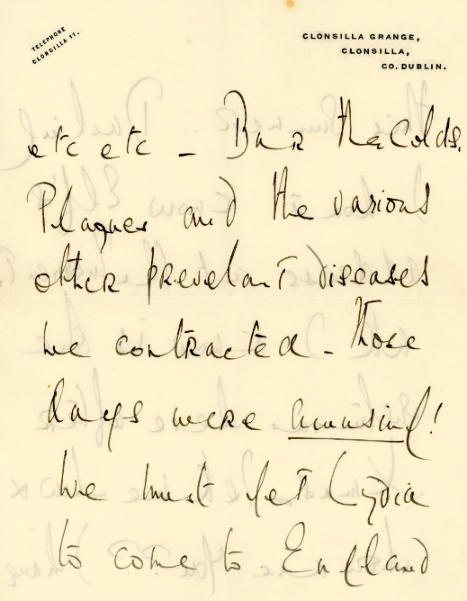 TELEPHONE
CLONSILLA 11.
CLONSILLA GRANGE,
CLONSILLA,
CO. DUBLIN.
etc etc – Bar the Colds.
Plagues and the various
other prevelant diseases
we contracted – those
days were amusing!
We must get Lydia
to come to England